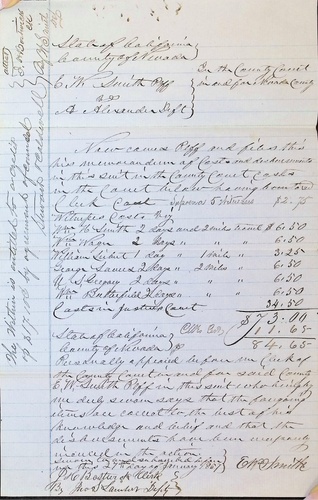 State of California
County of Nevada
In the County Court
in and for Nevada County
E. W. Smith Plff
vs
A Alexander Deft
Now comes Plff and files this
his memorandum of Costs and disbursements
in this suit in the County Court Costs
in the Court below having been
Clerk Cost Subpoenas & Witnesses $2.75
Witnesses Costs
Wm H Smith 2 days and 2 miles travel $6.50
Wm Wagner 2 days " " " 6.50
William 1 day " 1 Mile " 3.25
George James 2 Days " 2 Miles " 6.50
U. S. Gregory 2 days " " 6.50
Wm Butterfield 2 Days " " 6.50
Costs in Justices Court 34.50
$73.00
11.65
84.65
State of California
County of Nevada
Personally appeared before me Clerk of
the County Court in and for said County
E. W. Smith Plff in this suit who being by
me duly sworn says that the foregoing
items are correct to the best of his
knowledge and belief and that the
disbursements have been necessarily
incurred in the action
E W Smith
Subscribed and sworn to before
me this 27th day of January 1857
Clerk
By Jno S Lambert Dept
The within is entitled to a credit
of by agreement of counsel